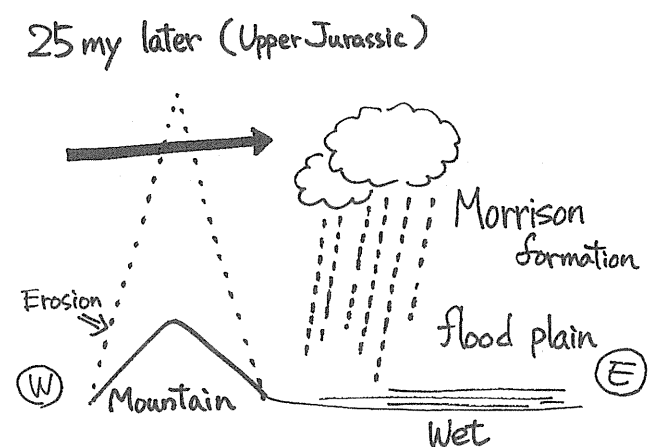 25 my later (Upper Jurassic)
Morrison
formation
Erosion
flood plain
W
E
Mountain
Wet